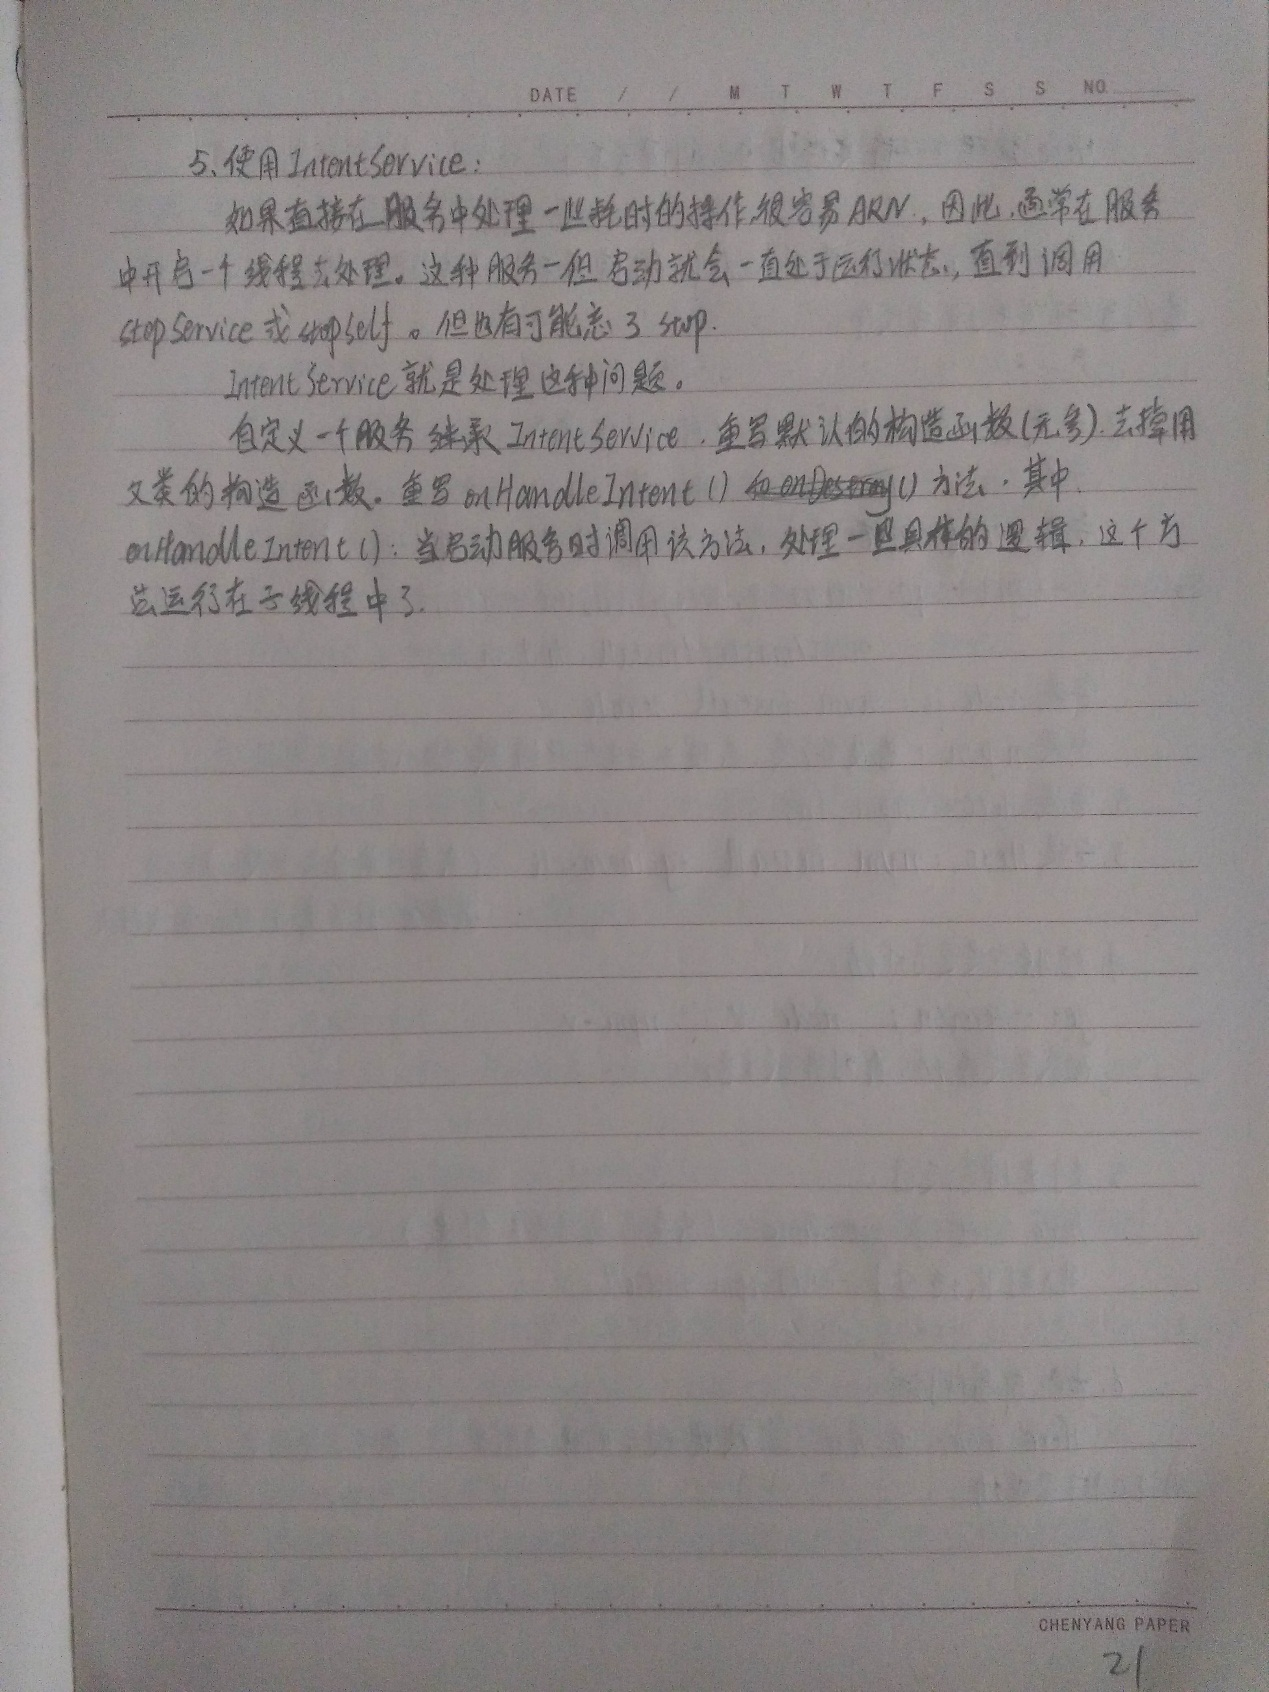 DATE / / M T W T F S S NO.
5、使用IntentService:
如果直接在服务中处理一些耗时的操作,很容易ARN,因此,通常在服务
中开启一个线程去处理。这种服务一但启动就会一直处于运行状态,直到调用
stopService或stopSelf。但也有可能忘了stop.
IntentService就是处理这种问题。
自定义一个服务继承IntentService,重写默认的构造函数(无参).去掉用
父类的构造函数。重写onHandleIntent()和onDestroy()方法.其中
onHandleIntent():当启动服务时调用该方法,处理一些具体的逻辑,这个方
法运行在子线程中了.
CHENYANG PAPER
21